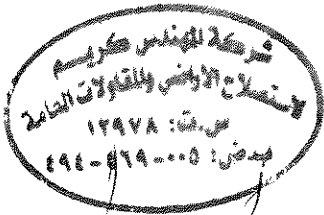 شركة المهندس كريم
لاستصلاح الأراضى والمقاولات العامة
س.ت: ١٢٩٧٨
ب.ض: ٠٠٥-٥٦٩-٤٩٤